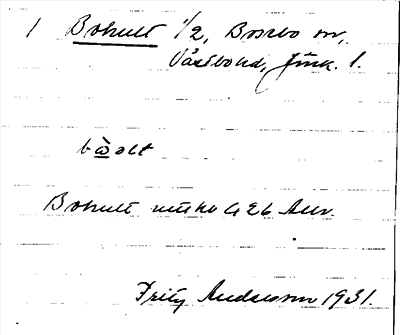 1 Bohult 1/2, Bosebo sn,
Västbo hd, Jönk. l.
bὼolt
Bohult mtkv 426 Auv.
Fritz Andersson 1931.